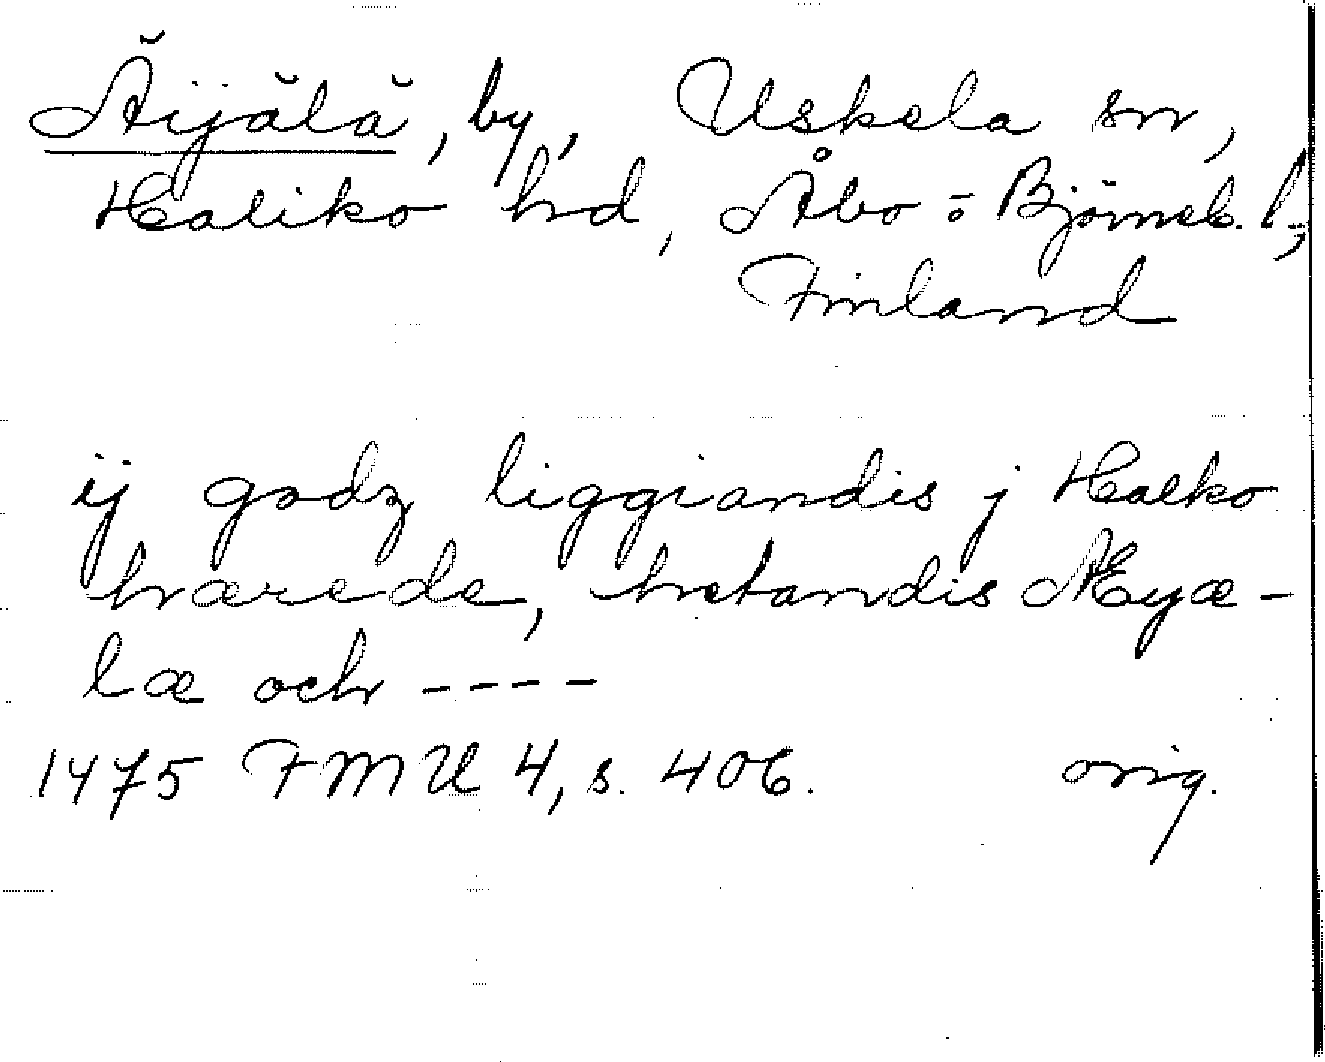 Äijälä, by, Uskela sn,
Haliko hd, Åbo o Björneb. l;
Finland
ij godz liggiandis j Halko
hærede, hetandis Æyæ-
læ och ----
1475 FMU 4, s. 406. orig.